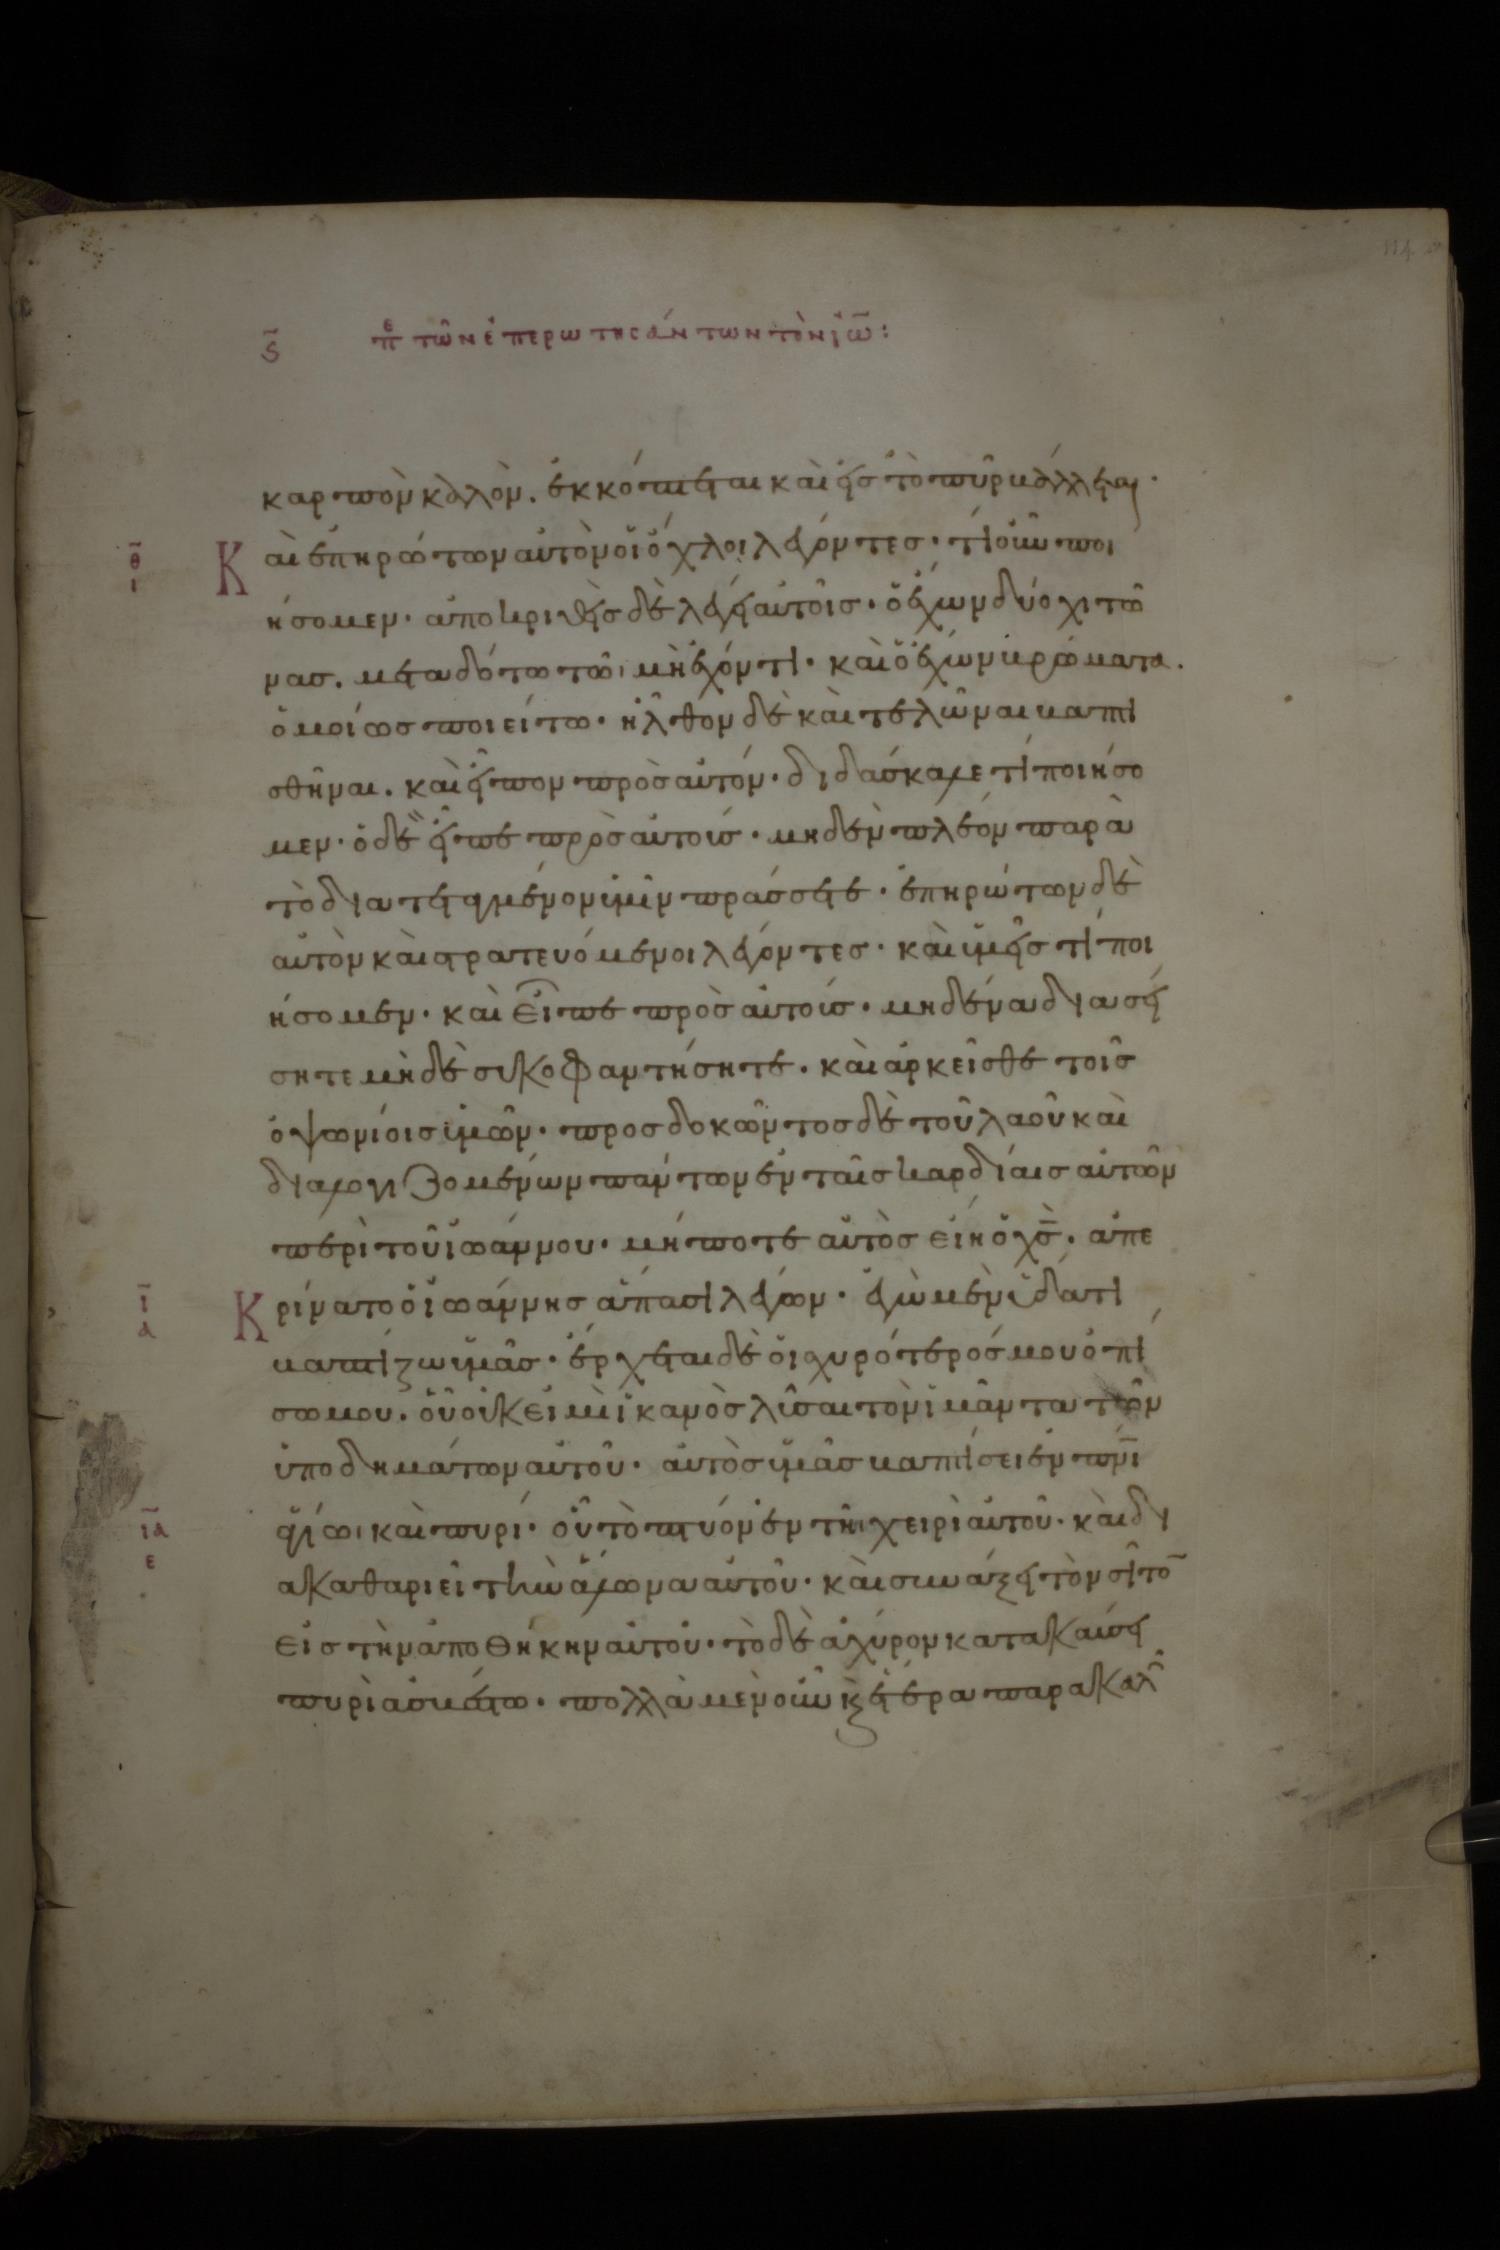 ς̄ πε τῶν ἐπερωτησάντων τὸν ἰω̄:
καρπὸν καλὸν. ἐκκόπτεται καὶ εἰς τὸ πῦρ βάλλεται·
θ̄
ι
Καὶ ἐπηρώτων αὐτὸν οἱ ὄχλοι λέγοντες· τί οὖν ποι
ήσομεν· ἀποκριθεὶς δὲ λέγει αὐτοῖς· ὁ ἔχων δύο χιτῶ
νας. μεταδότω τῶι μὴ ἔχοντι· καὶ ὁ ἔχων βρώματα.
ὁμοίως ποιείτω· ἦλθον δὲ καὶ τελῶναι βαπτι
σθῆναι. καὶ εἶπον πρὸς αὐτόν· διδάσκαλε τί ποιήσο
μεν· ὁ δὲ εἶπε πρὸς αὐτούς· μηδὲν πλέον παρὰ
τὸ διατεταγμένον ὑμῖν πράσσετε· ἐπηρώτων δὲ
αὐτὸν καὶ στρατευόμενοι λέγοντες· καὶ ἡμεῖς τί ποι
ήσομεν· καὶ εἶπε πρὸς αὐτούς· μηδένα διασεί
σητε μὴδὲ συκοφαντήσητε· καὶ ἀρκεῖσθε τοῖς
ὀψωνίοις ὑμῶν· προσδοκῶντος δὲ τοῦ λαοῦ καὶ
διαλογιζομένων πάντων ἐν ταῖς καρδίαις αὐτῶν
περὶ τοῦ ἰωάννου· μήποτε αὐτὸς εἴη ὁ χ̄ς̄· ἀπε
ῑ
α
Κρίνατο ὁ ἰωάννης ἅπασι λέγων· ἐγὼ μὲν ὕδατι
βαπτίζω ὑμᾶς· ἔρχεται δὲ ὁ ἰσχυρότερός μου ὀπί
σω μου· οὗ οὐκ εἰμὶ ἱκανὸς λῦσαι τὸν ἱμάντα τῶν
ὑποδημάτων αὐτοῦ· αὐτὸς ὑμᾶς βαπτίσει ἐν πν̄ι
ῑᾱ
ε
ἁγίωι καὶ πυρί· οὗ τὸ πτύον ἐν τῆι χειρὶ αὐτοῦ· καὶ δι
ακαθαριεῖ τὴν ἅλωνα αὐτοῦ· καὶ συνάξει τὸν σῖτο̄
εἰς τὴν ἀποθήκην αὐτοῦ· τὸ δὲ ἄχυρον κατακαύσει
πυρὶ ἀσβέστω· πολλὰ μὲν οὖν κ̀ ἕτερα παρακαλῶ̂